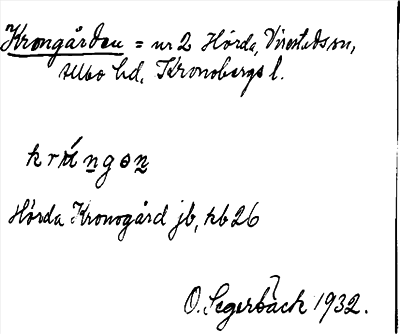 Krongården = nr 2 Hörda, Virestads sn,
Allbo hd, Kronobergs l.
krångon
Hörda Kronogård jb, kb 26
O. Segerbäck 1932.